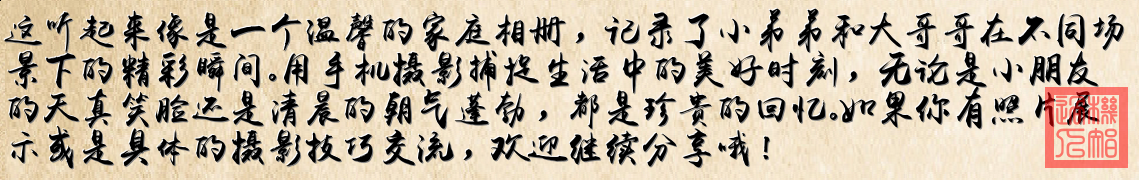 这听起来像是一个温馨的家庭相册，记录了小弟弟和大哥哥在不同场
景下的精彩瞬间。用手机摄影捕捉生活中的美好时刻，无论是小朋友
的天真笑脸还是清晨的朝气蓬勃，都是珍贵的回忆。如果你有照片展
示或是具体的摄影技巧交流，欢迎继续分享哦！